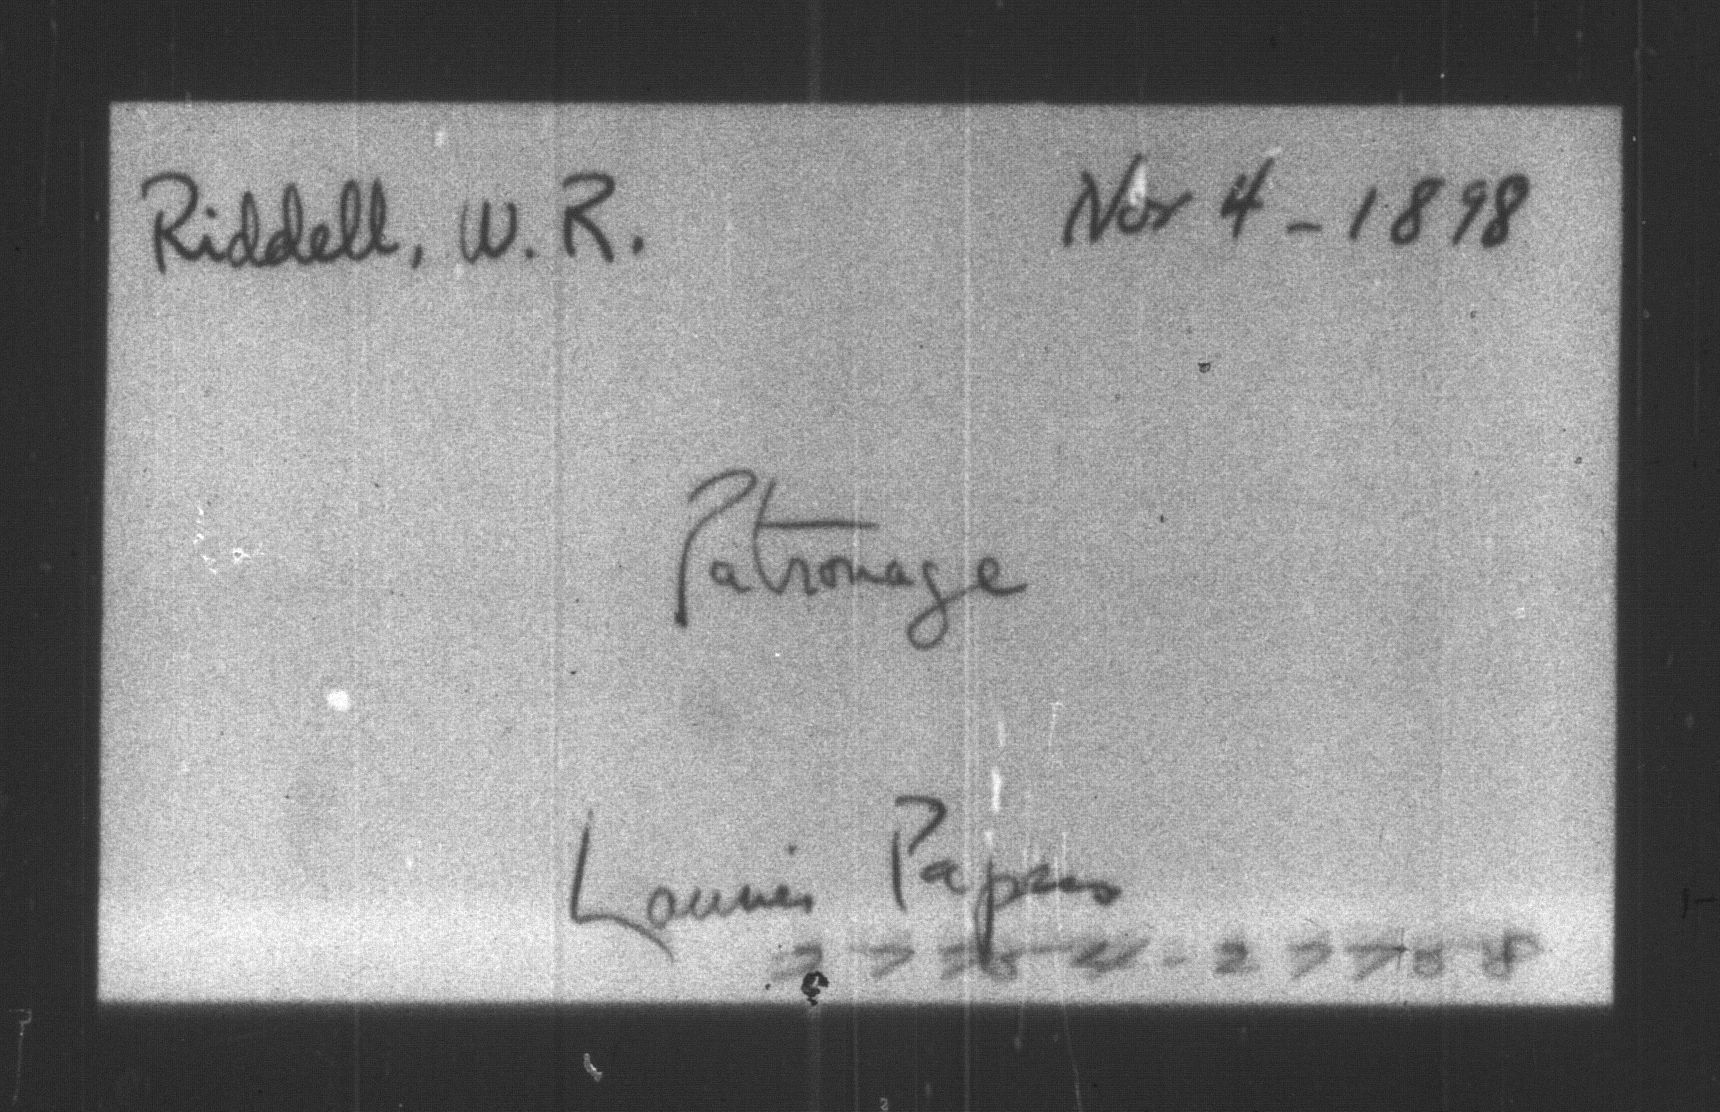 Riddell, W. R. Nov 4 - 1898
Patronage
Laurier Papers
27754-27758